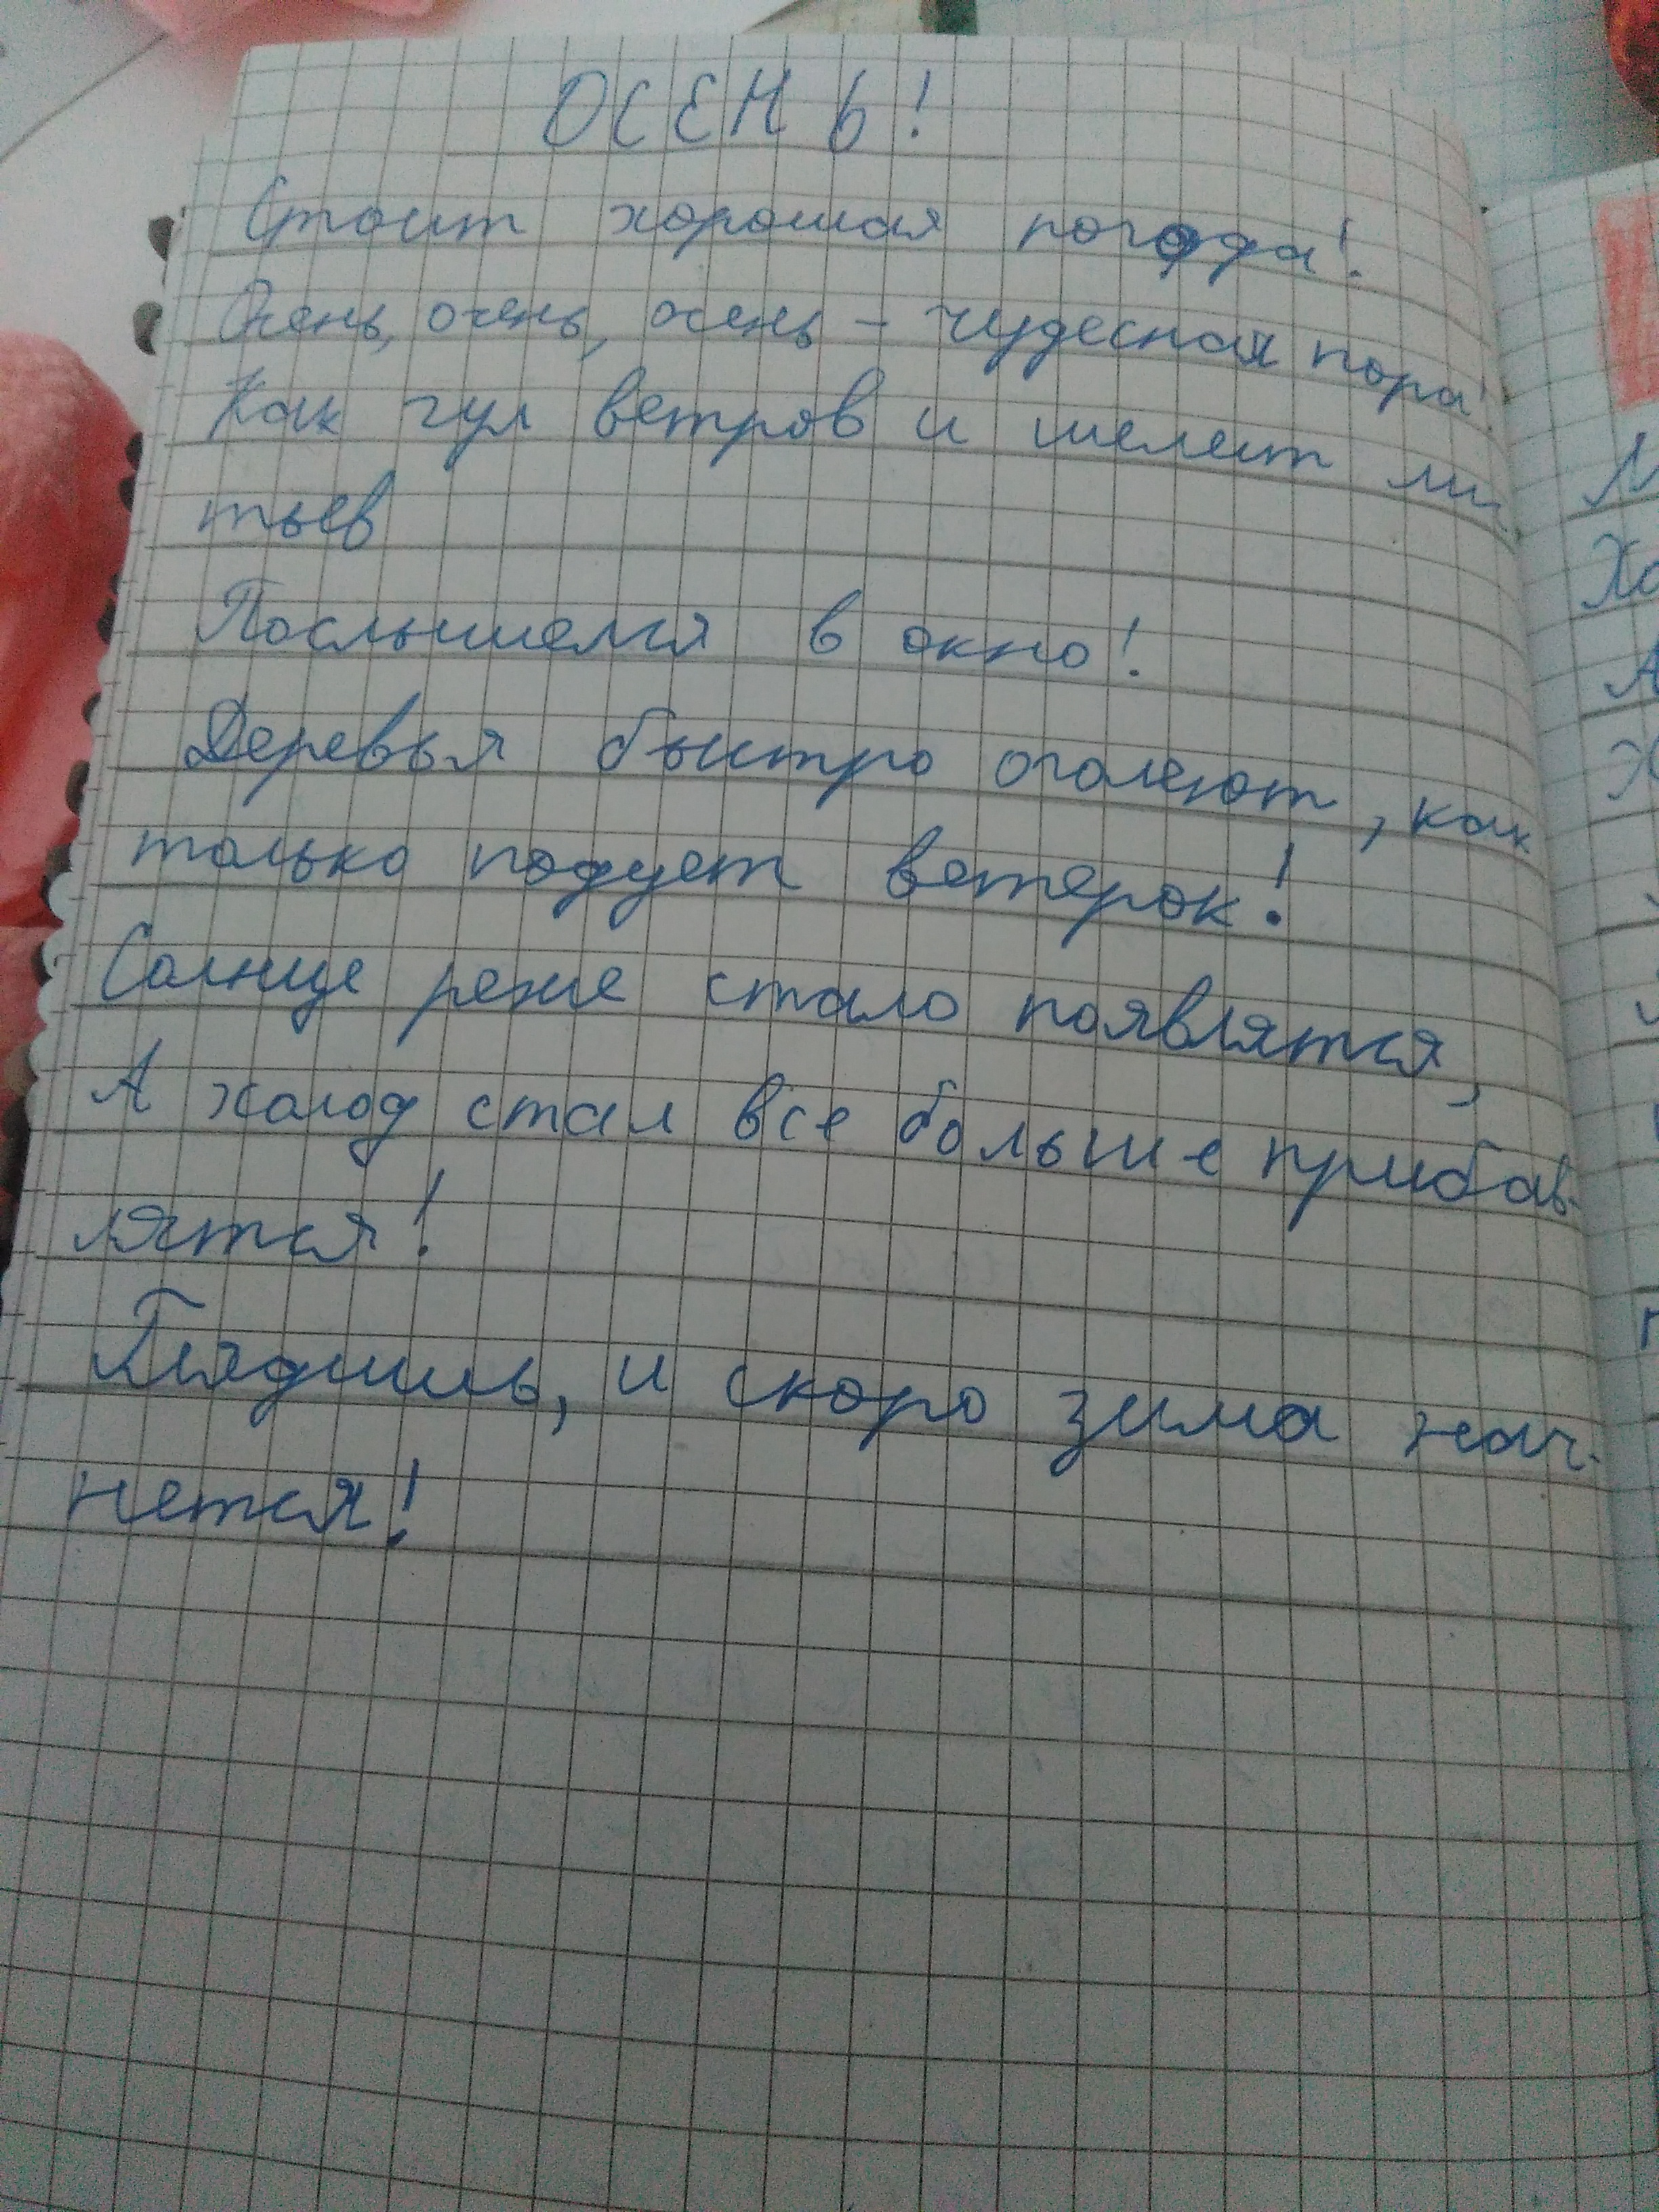 ОСЕНЬ!
Стоит хорошая погода!
Очень, очень, осень - чудесная пора!
Как гул ветров и шелест ли-
тьев
Послышелся в окно!
Деревья быстро оголеют, как
только подует ветерок!
Солнце реже стало появлятся,
А холод стал все больше прибав-
лятся!
Глядишь, и скоро зима нач-
нется!